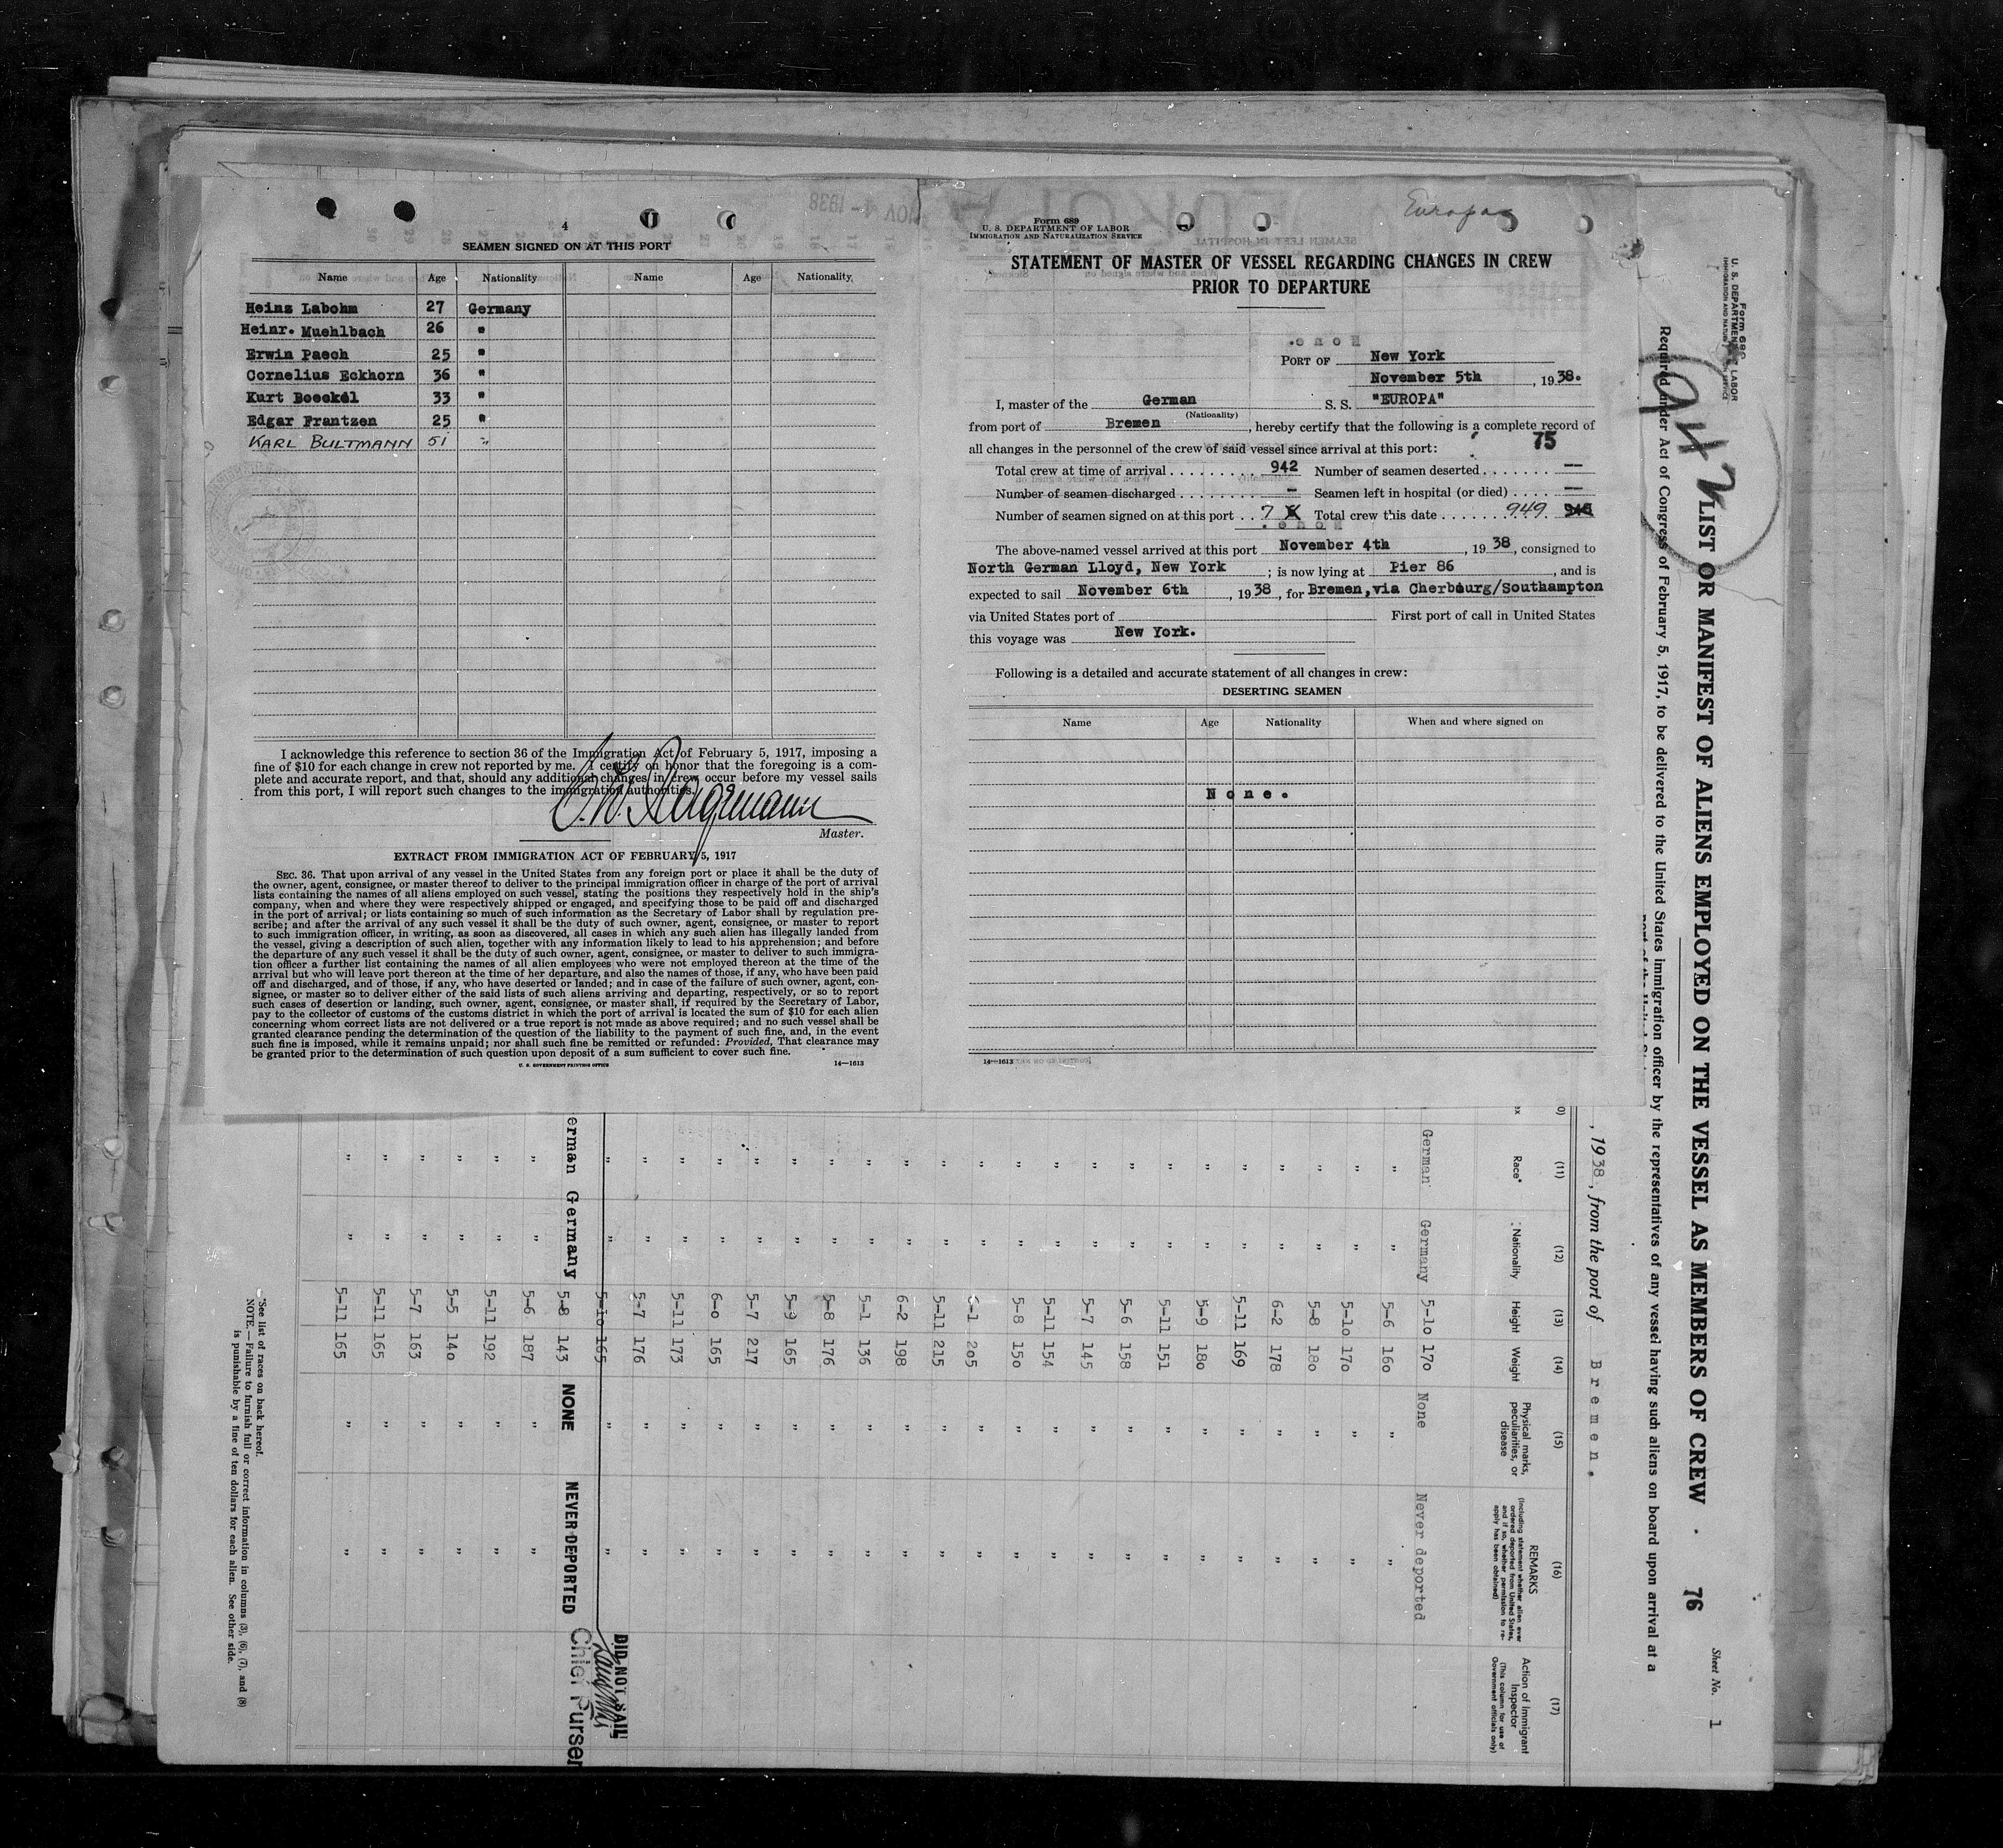 4
SEAMEN SIGNED ON AT THIS PORT
Name Age Nationality Name Age Nationality
Heinz Labohm 27 Germany
Heinr. Muehlbach 26 "
Erwin Paech 25 "
Cornelius Eckhorn 36 "
Kurt Boeckel 33 "
Edgar Frantzen 25 "
KARL BULTMANN 51 "
I acknowledge this reference to section 36 of the Immigration Act of February 5, 1917, imposing a
fine of $10 for each change in crew not reported by me. I certify on honor that the foregoing is a com-
plete and accurate report, and that, should any additional changes in crew occur before my vessel sails
from this port, I will report such changes to the immigration authorities.
Master.
EXTRACT FROM IMMIGRATION ACT OF FEBRUARY 5, 1917
SEC. 36. That upon arrival of any vessel in the United States from any foreign port or place it shall be the duty of
the owner, agent, consignee, or master thereof to deliver to the principal immigration officer in charge of the port of arrival
lists containing the names of all aliens employed on such vessel, stating the positions they respectively hold in the ship's
company, when and where they were respectively shipped or engaged, and specifying those to be paid off and discharged
in the port of arrival; or lists containing so much of such information as the Secretary of Labor shall by regulation pre-
scribe; and after the arrival of any such vessel it shall be the duty of such owner, agent, consignee, or master to report
to such immigration officer, in writing, as soon as discovered, all cases in which any such alien has illegally landed from
the vessel, giving a description of such alien, together with any information likely to lead to his apprehension; and before
the departure of any such vessel it shall be the duty of such owner, agent, consignee, or master to deliver to such immigra-
tion officer a further list containing the names of all alien employees who were not employed thereon at the time of the
arrival but who will leave port thereon at the time of her departure, and also the names of those, if any, who have been paid
off and discharged, and of those, if any, who have deserted or landed; and in case of the failure of such owner, agent, con-
signee, or master so to deliver either of the said lists of such aliens arriving and departing, respectively, or so to report
such cases of desertion or landing, such owner, agent, consignee, or master shall, if required by the Secretary of Labor,
pay to the collector of customs of the customs district in which the port of arrival is located the sum of $10 for each alien
concerning whom correct lists are not delivered or a true report is not made as above required; and no such vessel shall be
granted clearance pending the determination of the question of the liability to the payment of such fine, and, in the event
such fine is imposed, while it remains unpaid; nor shall such fine be remitted or refunded: Provided, That clearance may
be granted prior to the determination of such question upon deposit of a sum sufficient to cover such fine.
U. S. GOVERNMENT PRINTING OFFICE 14—1613
Europa
Form 689
U. S. DEPARTMENT OF LABOR
IMMIGRATION AND NATURALIZATION SERVICE
STATEMENT OF MASTER OF VESSEL REGARDING CHANGES IN CREW
PRIOR TO DEPARTURE
PORT OF New York
November 5th, 1938.
I, master of the German S. S. "EUROPA"
(Nationality)
from port of Bremen, hereby certify that the following is a complete record of
all changes in the personnel of the crew of said vessel since arrival at this port: 75
Total crew at time of arrival . . . . . . . . . 942 Number of seamen deserted . . . . . . . —
Number of seamen discharged . . . . . . . . - Seamen left in hospital (or died) . . . . —
Number of seamen signed on at this port . . 7 Total crew this date . . . . . . . 949
The above-named vessel arrived at this port November 4th, 1938, consigned to
North German Lloyd, New York ; is now lying at Pier 86, and is
expected to sail November 6th, 1938, for Bremen, via Cherbourg/Southampton
via United States port of First port of call in United States
this voyage was New York.
Following is a detailed and accurate statement of all changes in crew:
DESERTING SEAMEN
Name Age Nationality When and where signed on
None.
14—1613
Form 689
U. S. DEPARTMENT OF LABOR
LIST OR MANIFEST OF ALIENS EMPLOYED ON THE VESSEL AS MEMBERS OF CREW 76
Sheet No. 1
Required under Act of Congress of February 5, 1917, to be delivered to the United States immigration officer by the representatives of any vessel having such aliens on board upon arrival at a
, 1938, from the port of Bremen.
(11) (12) (13) (14) (15) (16) (17)
Race* Nationality Height Weight Physical marks, peculiarities, or disease REMARKS (Including statement whether alien ever ordered deported from United States, and if so, whether permission to re-apply has been obtained) Action of Immigrant Inspector (This column for use of Government officials only)
German Germany 5-10 170 None Never deported
" " 5-6 160 " "
" " 5-10 170 " "
" " 5-8 180 " "
" " 6-2 178 " "
" " 5-11 169 " "
" " 5-9 180 " "
" " 5-11 151 " "
" " 5-6 158 " "
" " 5-7 145 " "
" " 5-11 154 " "
" " 5-8 150 " "
" " 6-1 205 " "
" " 5-11 215 " "
" " 6-2 198 " "
" " 5-1 136 " "
" " 5-8 176 " "
" " 5-9 165 " "
" " 5-7 217 " "
" " 6-0 165 " "
" " 5-11 173 " "
" " 5-7 176 " "
" " 5-10 165 " " DID NOT SAIL
Chief Purser
erman Germany 5-8 143 NONE NEVER DEPORTED
" " 5-6 187 " "
" " 5-11 192 " "
" " 5-5 140 " "
" " 5-7 163 " "
" " 5-11 165 " "
" " 5-11 165 " "
*See list of races on back hereof.
NOTE.—Failure to furnish full or correct information in columns (3), (6), (7), and (8)
is punishable by a fine of ten dollars for each alien. See other side.